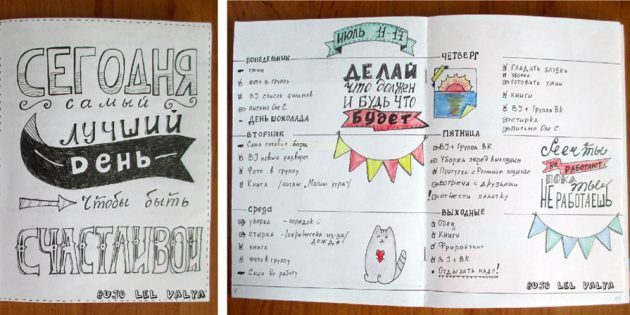 СЕГОДНЯ
самый
ЛУЧШИЙ
ДЕНЬ
Чтобы быть
СЧАСТЛИВОЙ
BUJO LEL VALYA
ИЮЛЬ 11-17
ПОНЕДЕЛЬНИК
ужин
фото в группу
BJ список фильмов
письмо Оле С.
- ДЕНЬ ШОКОЛАДА
ВТОРНИК
Саша готовит борщ
BJ новый разворот
Фото в группу
Книга
Среда
уборка - порядок
стирка - /перенесена из-за/
дождя
книга
Фото в группу
Саша на работу
ДЕЛАЙ
что должен
И БУДЬ ЧТО
будет
ЧЕТВЕРГ
ГЛАДИТЬ БЛУЗКИ
уборка
готовить ужин
книги
BJ + Группа ВК
стирка
письмо Оле С.
ПЯТНИЦА
BJ + Группа ВК
Уборка перед выходным
встреча с друзьями
отнести палатку
ВЫХОДНЫЕ
Обед
Книги
Фрирайтинг
BJ + ВК
Отдыхать надо!
Мечты
не РАБОТАЮТ
ПОКА
ты
НЕ РАБОТАЕШЬ
BUJO LEL VALYA